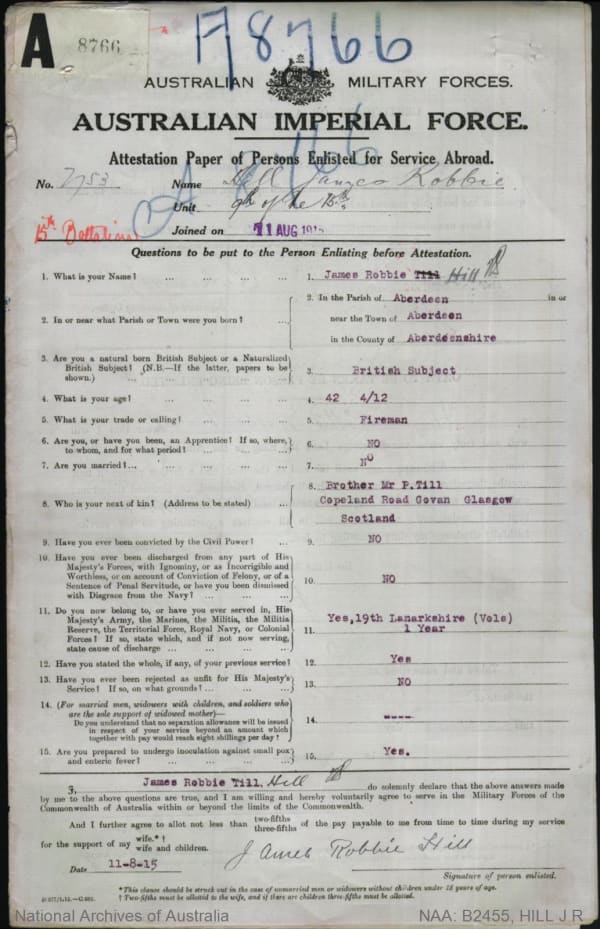 A 8766
A 8766
AUSTRALIAN MILITARY FORCES.
AUSTRALIAN IMPERIAL FORCE.
Attestation Paper of Persons Enlisted for Service Abroad.
No. 2753 Name Hill James Robbie
15th Battalion Unit 9th of the 15th
Joined on 11 AUG 1915
Questions to be put to the Person Enlisting before Attestation.
1. What is your Name? ... ... ... ... 1. James Robbie Till Hill
2. In or near what Parish or Town were you born? ... 2. In the Parish of Aberdeen in or
near the Town of Aberdeen
in the County of Aberdeenshire
3. Are you a natural born British Subject or a Naturalized
British Subject? (N.B.—If the latter, papers to be
shown.) ... ... ... ... 3. British Subject
4. What is your age? ... ... ... ... 4. 42 4/12
5. What is your trade or calling? ... ... ... 5. Fireman
6. Are you, or have you been, an Apprentice? If so, where,
to whom, and for what period? ... ... ... 6. NO
7. Are you married? ... ... ... ... 7. NO
8. Who is your next of kin? (Address to be stated) ... 8. Brother Mr P.Till
Copeland Road Govan Glasgow
Scotland
9. Have you ever been convicted by the Civil Power? ... 9. NO
10. Have you ever been discharged from any part of His
Majesty's Forces, with Ignominy, or as Incorrigible and
Worthless, or on account of Conviction of Felony, or of a
Sentence of Penal Servitude, or have you been dismissed
with Disgrace from the Navy? ... ... ... 10. NO
11. Do you now belong to, or have you ever served in, His
Majesty's Army, the Marines, the Militia, the Militia
Reserve, the Territorial Force, Royal Navy, or Colonial
Forces? If so, state which, and if not now serving,
state cause of discharge ... ... ... 11. Yes,19th Lanarkshire (Vols)
1 Year
12. Have you stated the whole, if any, of your previous service? 12. Yes
13. Have you ever been rejected as unfit for His Majesty's
Service? If so, on what grounds? ... ... ... 13. NO
14. (For married men, widowers with children, and soldiers who
are the sole support of widowed mother)—
Do you understand that no separation allowance will be issued
in respect of your service beyond an amount which
together with pay would reach eight shillings per day? 14. ----
15. Are you prepared to undergo inoculation against small pox
and enteric fever? ... ... ... ... 15. Yes.
I, James Robbie Till, Hill do solemnly declare that the above answers made
by me to the above questions are true, and I am willing and hereby voluntarily agree to serve in the Military Forces of the
Commonwealth of Australia within or beyond the limits of the Commonwealth.
And I further agree to allot not less than two-fifths three-fifths of the pay payable to me from time to time during my service
for the support of my wife.* † wife and children.
James Robbie Hill
Date 11-8-15 Signature of person enlisted.
* This clause should be struck out in the case of unmarried men or widowers without children under 18 years of age.
† Two-fifths must be allotted to the wife, and if there are children three-fifths must be allotted.
National Archives of Australia NAA: B2455, HILL J R